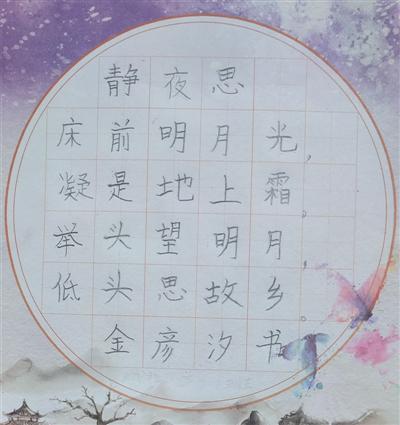 静夜思
床前明月光，
凝是地上霜。
举头望明月，
低头思故乡。
金彦汐书